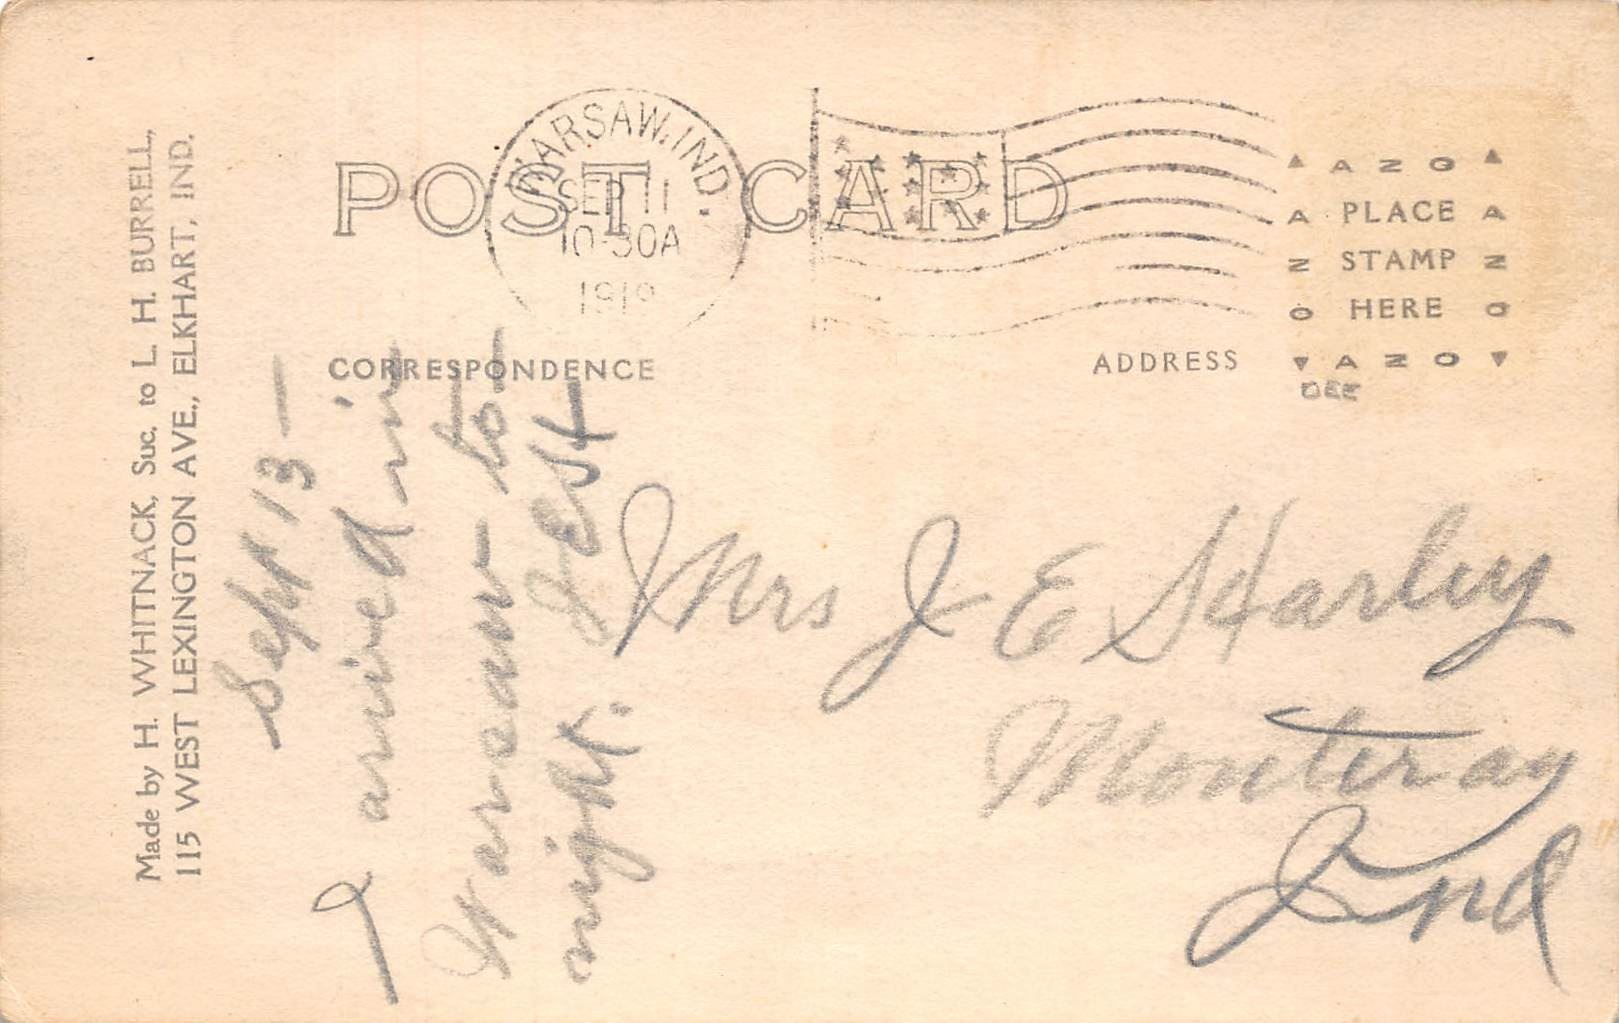 POST CARD
WARSAW, IND.
SEP 11
10-30A
1919
AZO
PLACE
STAMP
HERE
AZO
CORRESPONDENCE
ADDRESS
Made by H. WHITNACK, Suc. to L. H. BURRELL,
115 WEST LEXINGTON AVE., ELKHART, IND.
Sept 13 –
I arived in
Warsaw to-
night.
Mrs J E Harley
Monteray
Ind